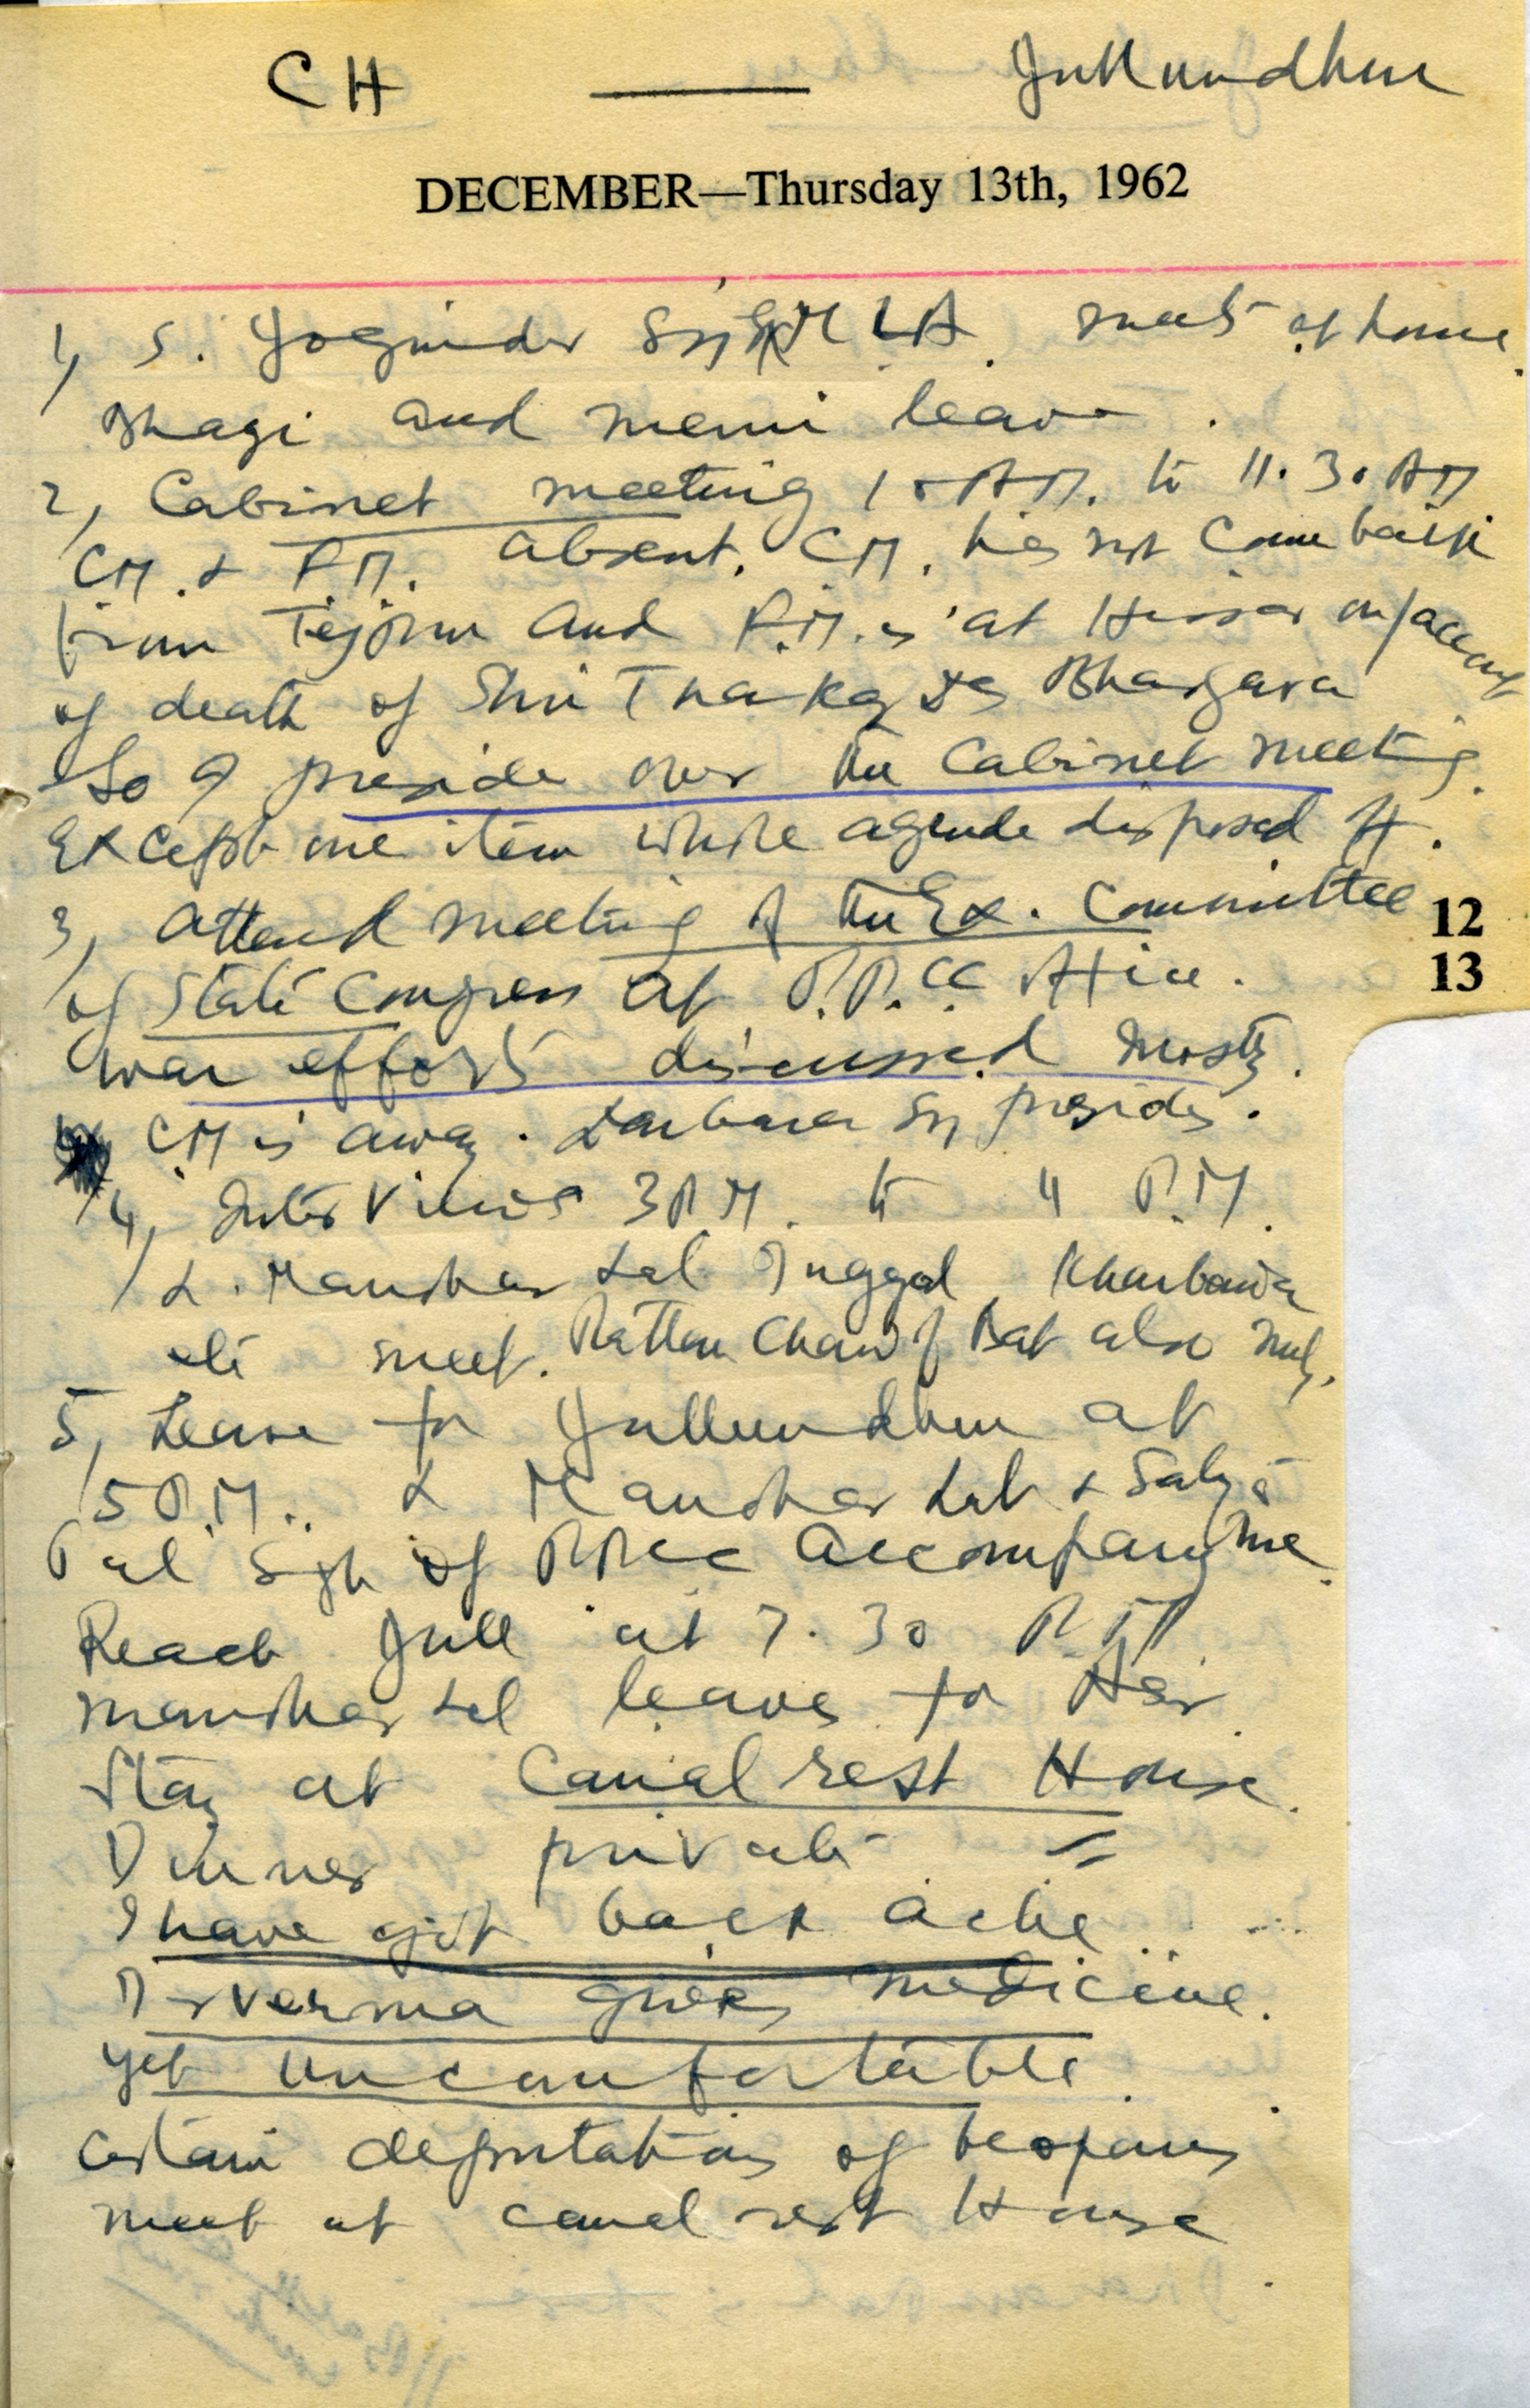 CH — Jullundhur
DECEMBER—Thursday 13th, 1962
1, S. Yoginder Sngh MLA. meets at home.
Bhagi and memi leave.
2, Cabinet meeting 10 AM. to 11.30 AM
CM. & F.M. absent. CM. has not come back
from Tejpur and F.M. is at Hissar on/account
of death of Shri Thakar Das Bhargava
So I preside over the Cabinet meeting.
Except one item whole agenda disposed of.
3, Attend meeting of the Ex. Committee
12
of State Congress at P.P.CC office.
13
war efforts discussed mostly.
CM is away. Darbara Sn presides.
4, Interviews 3 P.M. to 4 P.M.
L. Manohar Lal Khurbanda
etc meet. Rattan Chand of Bat also meets.
5, Leave for Jullundhur at
5 P.M.. L Manohar Lal & Satya
Pal Sgh of PPCC accompany me.
Reach Jull at 7.30 P.M
Manohar Lal leaves for Asr.
Stay at Canal rest House.
Dinner private =
I have got back ache..
Dr Verma gives medicine.
yet uncomfortable.
Certain deputations of beoparis
meet at canal rest House